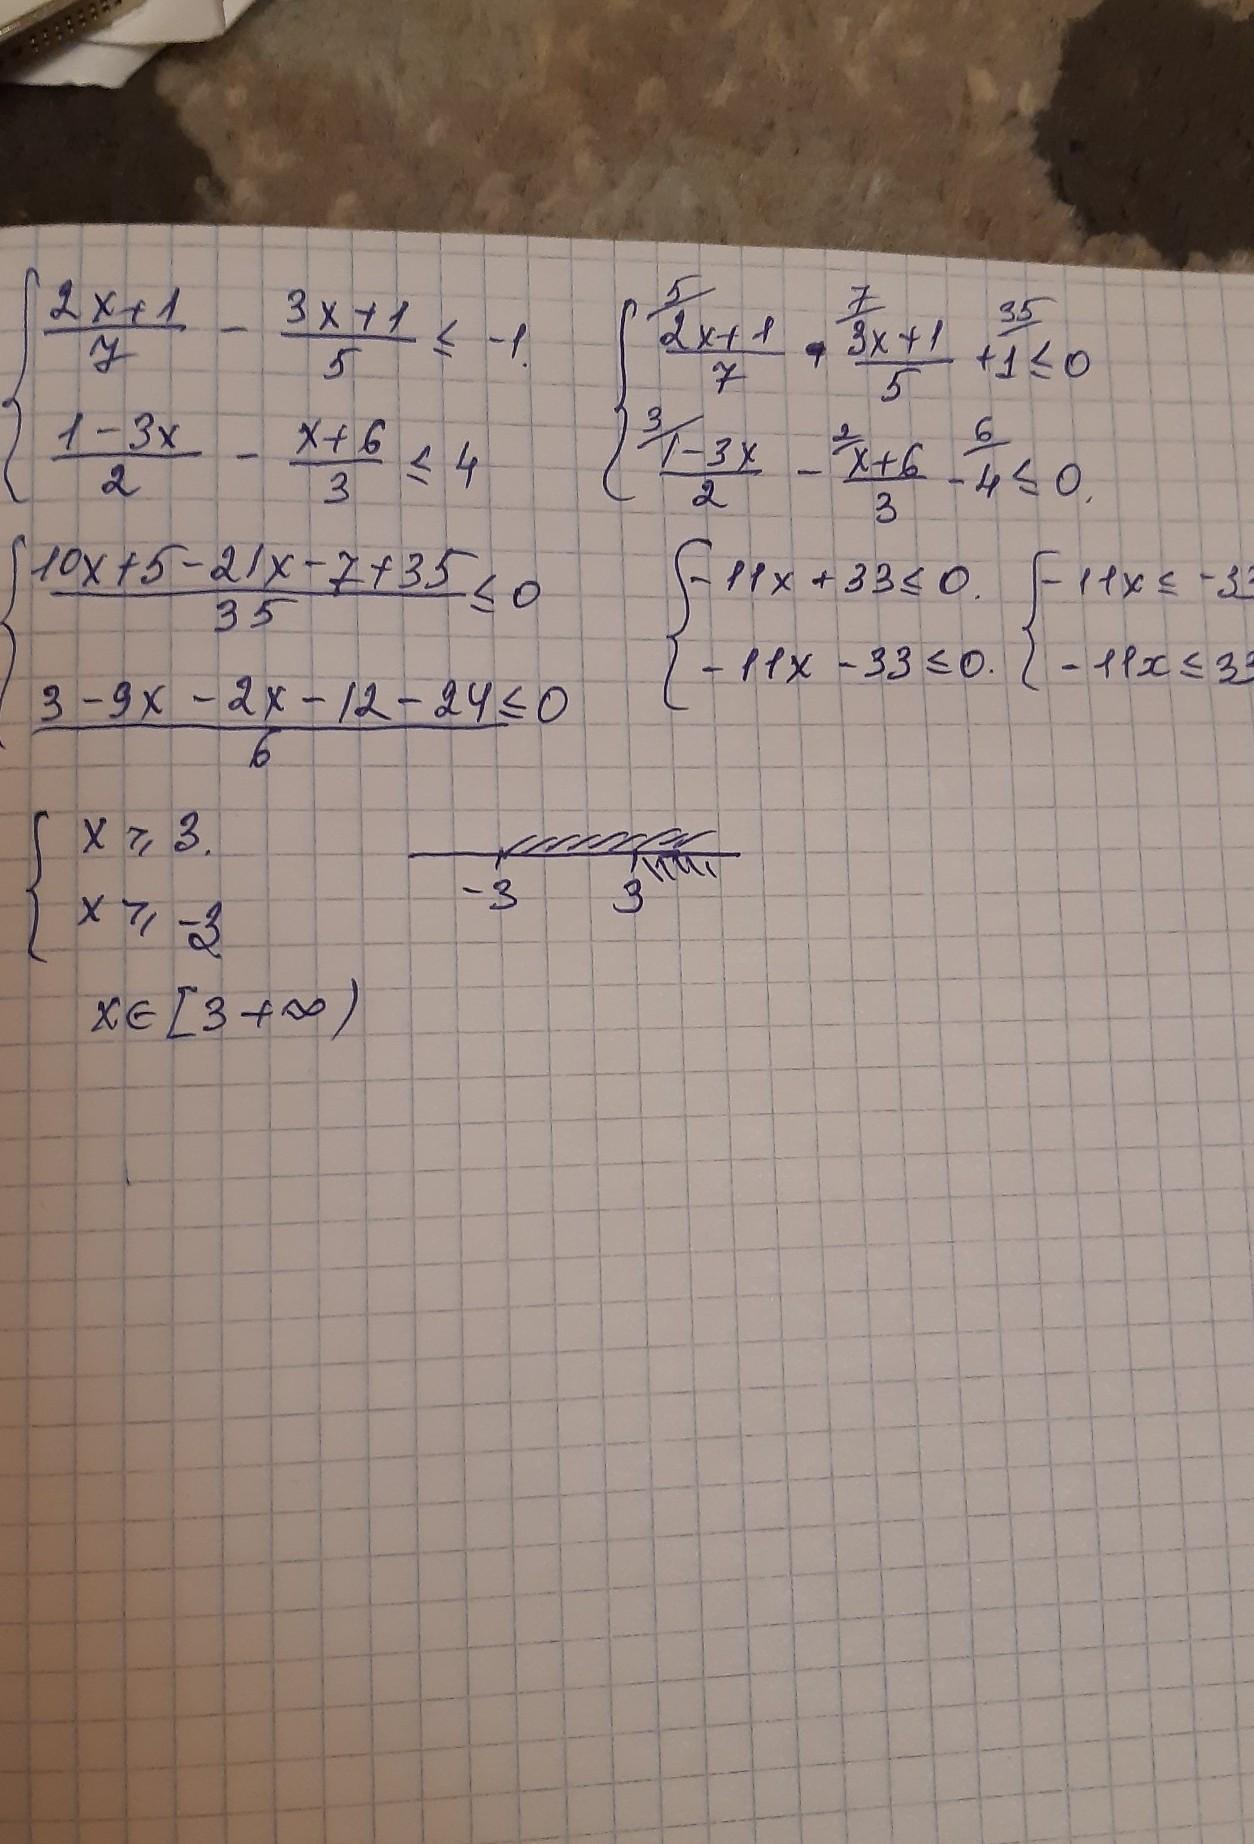 { (2x+1)/7 - (3x+1)/5 ≤ -1.
{ (1-3x)/2 - (x+6)/3 ≤ 4
{ 5/ (2x+1)/7 - 7/ (3x+1)/5 + 35/ 1 ≤ 0
{ 3/ (1-3x)/2 - 2/ (x+6)/3 - 6/ 4 ≤ 0.
{ (10x+5-21x-7+35)/35 ≤ 0
{ (3-9x-2x-12-24)/6 ≤ 0
{ -11x+33 ≤ 0.
{ -11x-33 ≤ 0.
{ -11x ≤ -33
{ -11x ≤ 33
{ x ⩾ 3.
{ x ⩾ -3
-3 3
x ∈ [3 +∞)